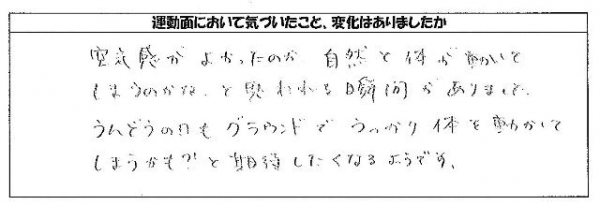 運動面において気づいたこと、変化はありましたか
空気感がよかったのか 自然と体が動いて
しまうのかな、と思われる瞬間がありまして、
うんどうの日もグラウンドで うっかり 体を動かして
しまうかも?!と期待したくなるようです。